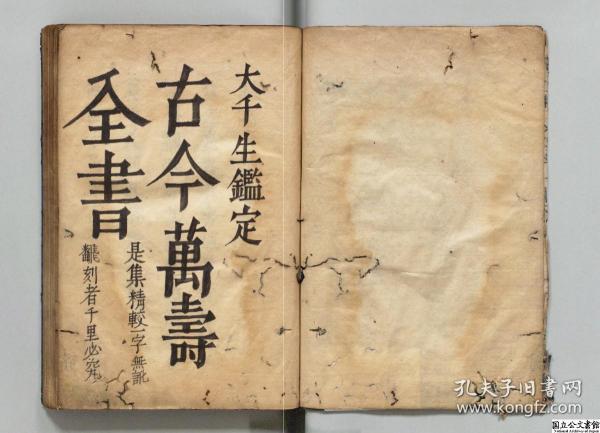 大千生鑑定
古今萬壽
全書
是集精較一字無訛
翻刻者千里必究
孔夫子旧書网
www.kongfz.com
国立公文書館
National Archives of Japan